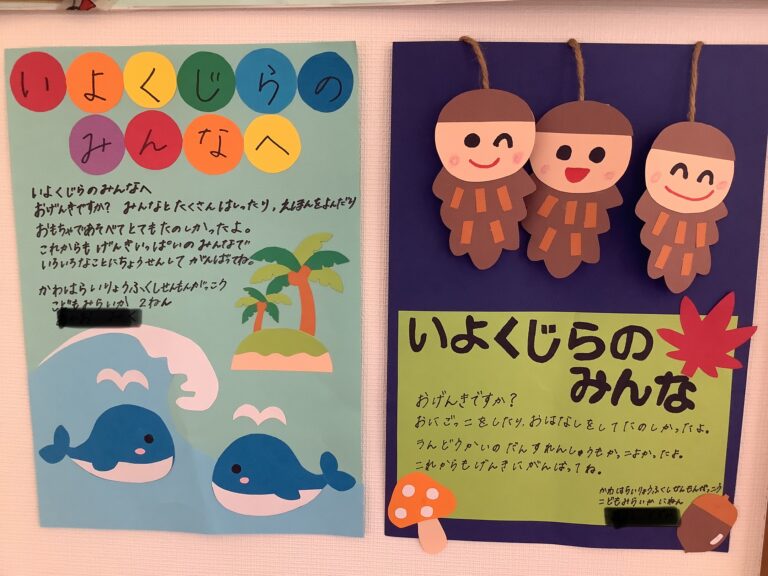 いよくじらの
みんなへ
いよくじらのみんなへ
おげんきですか? みんなとたくさんはしったり、えほんをよんだり
おもちゃであそべてとてもたのしかったよ。
これからもげんきいっぱいのみんなで
いろいろなことにちょうせんしてがんばってね。
かわはらいりょうふくしせんもんがっこう
こどもみらいか 2ねん
いよくじらの
みんな
おげんきですか?
おにごっこをしたり、おはなしをしてたのしかったよ。
うんどうかいのだんすれんしゅうもかっこよかったよ。
これからもげんきにがんばってね。
かわはらいりょうふくしせんもんがっこう
こどもみらいか にねん